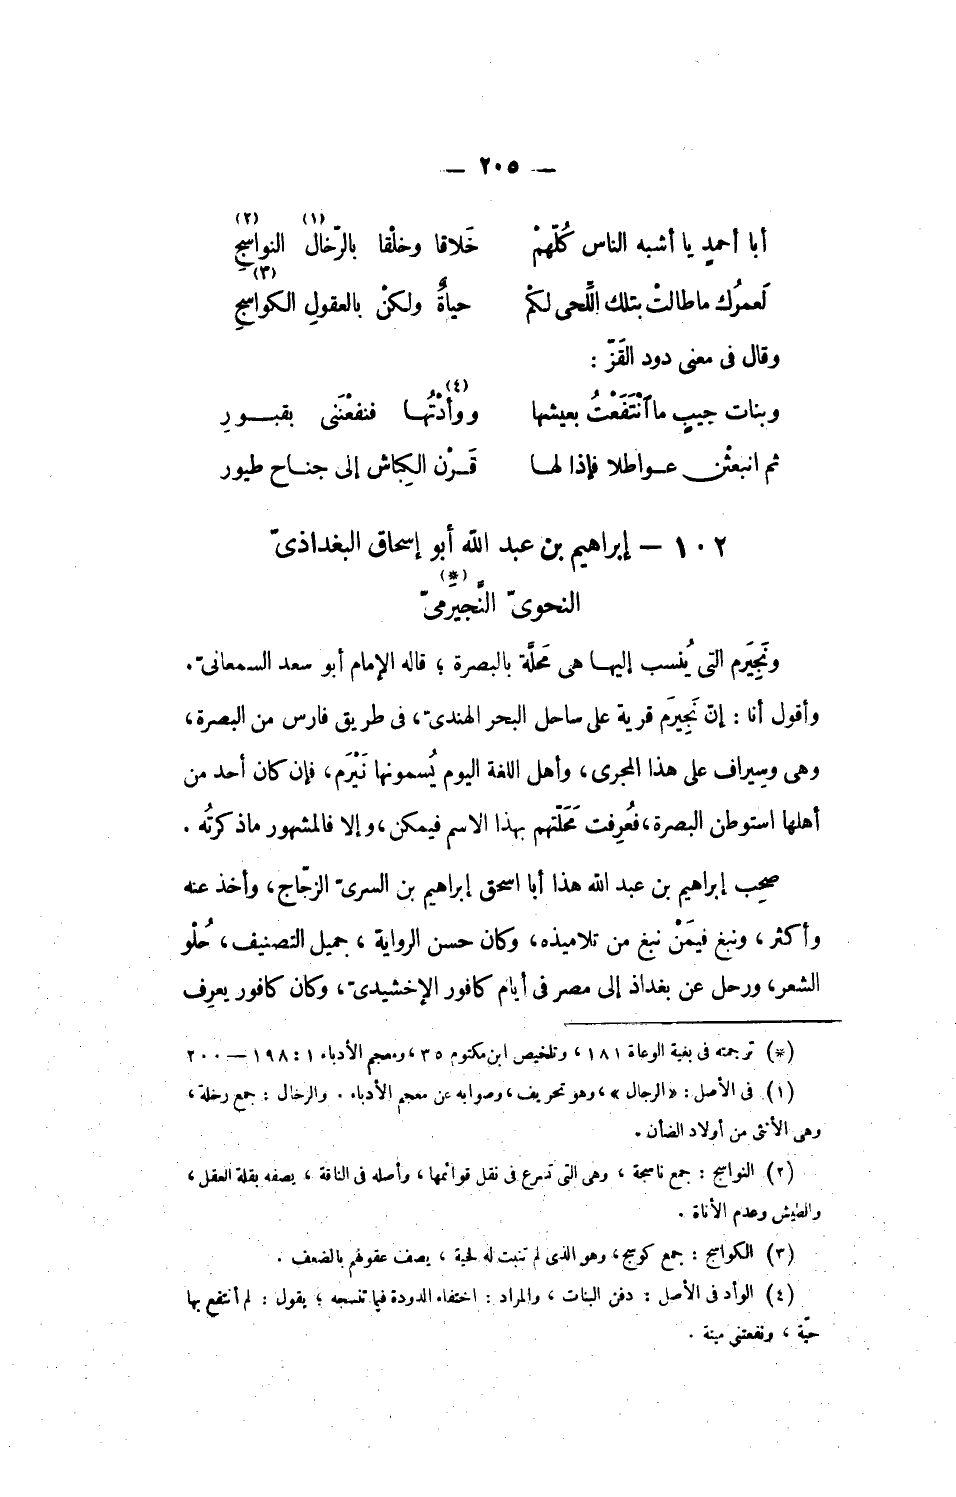 — ٢٠٥ —
أبا أحمدٍ يا أشبه الناس كُلِّهمْ خَلاقا وخلْقا بالرِّخال (١) النواسِجِ (٢)
لَعمرُك ما طالتْ بتلك اللِّحى لكمْ حياةٌ ولكنْ بالعقولِ الكواسِجِ (٣)
وقال فى معنى دود القَزّ :
وبنات جيبٍ ما ٱنْتَفَعْتُ بعيشها ووأدْتُها (٤) فنفعْنَنى بقبــورِ
ثم انبعثْن عــواطلا فإذا لهـا قَــرْن الكِباش إلى جنـاح طيور
١٠٢ — إبراهيم بن عبد الله أبو إسحاق البغداذىّ
النحوىّ النَّجيرَمىّ (*)
ونَجِيَرم التى يُنسب إليهـا هى مَحلَّة بالبصرة ؛ قاله الإمام أبو سعد السمعانىّ.
وأقول أنا : إنّ نَجِيرَم قرية على ساحل البحر الهندىّ، فى طريق فارس من البصرة،
وهى وسِيراف على هذا المجرى، وأهل اللغة اليوم يُسمونها نَيْرَم، فإن كان أحد من
أهلها استوطن البصرة، فعُرِفت مَحَلّتهم بهذا الاسم فيمكن، وإلا فالمشهور ماذكرتُه .
صحِب إبراهيم بن عبد الله هذا أبا اسحق إبراهيم بن السرىّ الزجّاج، وأخذ عنه
وأكثر، ونبغ فيمَنْ نبغ من تلاميذه، وكان حسن الرواية ، جميل التصنيف، حُلْو
الشعر، ورحل عن بغداذ إلى مصر فى أيام كافور الإخشيدىّ، وكان كافور يعرِف
(*) ترجمته فى بغية الوعاة ١٨١، وتلخيص ابن مكتوم ٣٥، ومعجم الأدباء ١ : ١٩٨ — ٢٠٠
(١) فى الأصل : «الرجال»، وهو تحريف، وصوابه عن معجم الأدباء . والرخال : جمع رخلة ،
وهى الأنثى من أولاد الضأن .
(٢) النواسج : جمع ناسجة ، وهى التى تسرع فى نقل قوائمها ، وأصله فى الناقة ، يصفه بقلة العقل ،
والطيش وعدم الأناة .
(٣) الكواسج : جمع كوسج، وهو الذى لم تنبت له لحية ، يصف عقولهم بالضعف .
(٤) الوأد فى الأصل : دفن البنات ، والمراد : اختفاء الدودة فيما تنسجه ؛ يقول : لم أنتفع بها
حيّة ، ونفعتنى ميتة .